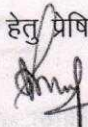 हेतु प्रेषि